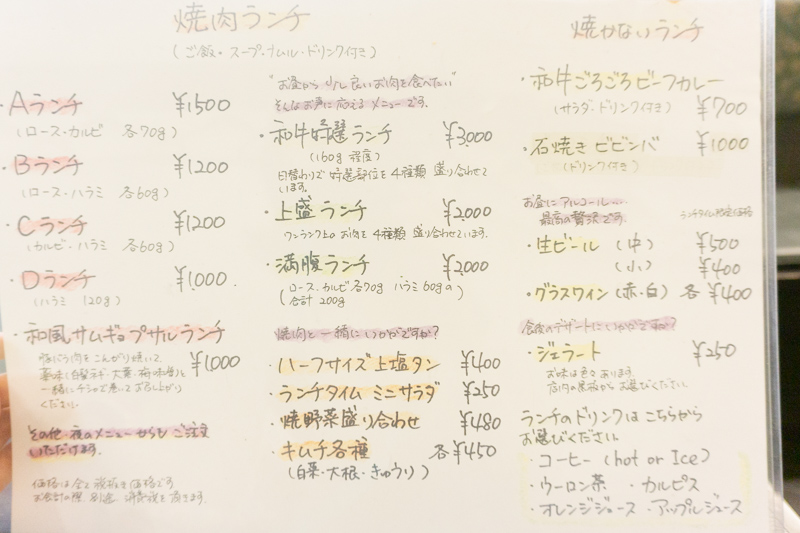 焼肉ランチ
(ご飯・スープ・ナムル・ドリンク付き)
・Aランチ ¥1500
(ロース・カルビ 各70g)
・Bランチ ¥1200
(ロース・ハラミ 各60g)
・Cランチ ¥1200
(カルビ・ハラミ 各60g)
・Dランチ ¥1,000
(ハラミ 120g)
・和風サムギョプサルランチ
¥1,000
豚バラ肉をこんがり焼いて、
薬味(白髪ネギ・大葉・梅味噌)と
一緒にチシャで巻いてお召し上がり
ください。
その他・夜のメニューからもご注文
いただけます。
価格は全て税抜き価格です
お会計の際、別途、消費税を頂きます。
"お昼から少し良いお肉を食べたい"
そんなお声に応えるメニューです。
・和牛特選ランチ ¥3,000
(160g 程度)
日替わりで特選部位を4種類 盛り合わせて
います。
・上盛ランチ ¥2,000
ワンランク上のお肉を4種類 盛り合わせています。
・満腹ランチ ¥2,000
(ロース、カルビ各70g ハラミ60gの
合計 200g
焼肉と一緒にいかがですか?
・ハーフサイズ上塩タン ¥400
・ランチタイム ミニサラダ ¥250
・焼野菜盛り合わせ ¥480
・キムチ各種 各¥450
(白菜・大根・きゅうり)
焼かないランチ
・和牛ごろごろビーフカレー
(サラダ・ドリンク付き) ¥700
・石焼きビビンバ ¥1000
(ドリンク付き)
お昼にアルコール…
最高の贅沢です。
・生ビール (中) ¥500
(小) ¥400
・グラスワイン(赤・白) 各¥400
食後のデザートにいかがですか?
・ジェラート ¥250
お味は色々あります。
店内の黒板からお選びください
ランチのドリンクはこちらから
お選びください。
・コーヒー (hot or Ice)
・ウーロン茶 ・カルピス
・オレンジジュース ・アップルジュース